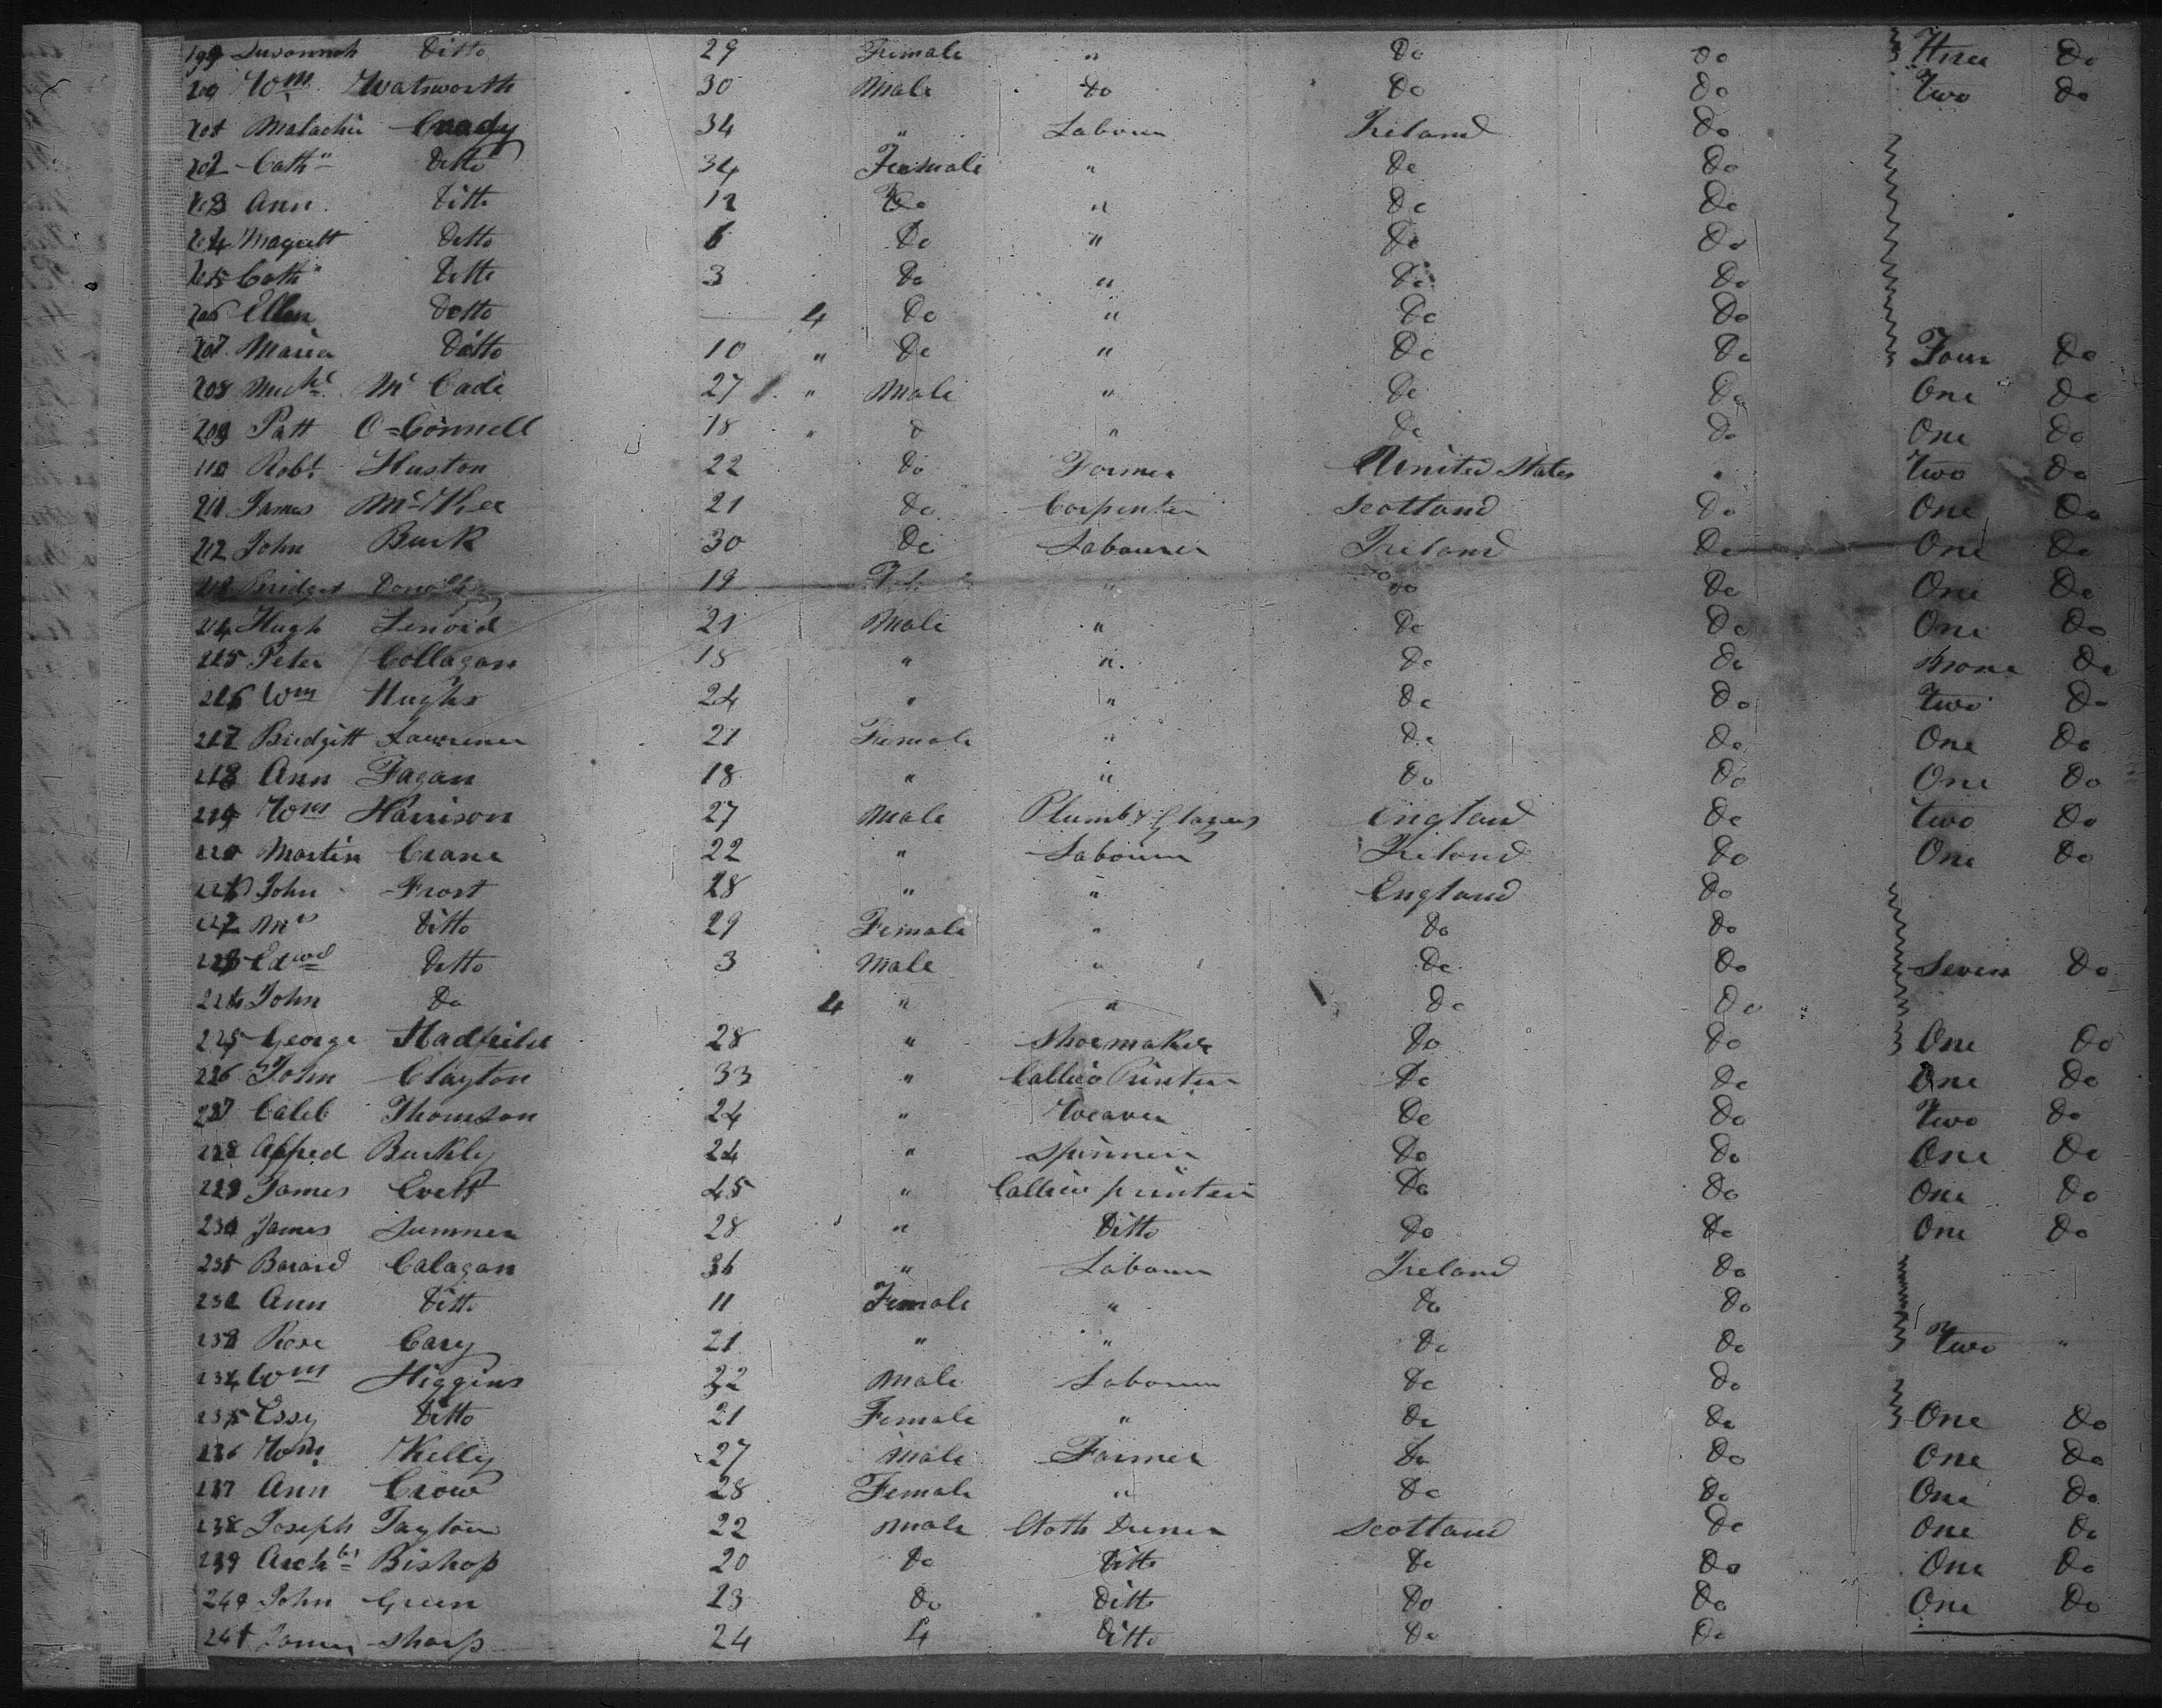 199 Susannah Ditto 29 Female " Do Do Three Do
200 Wm Watsworth 30 Male Do Do Do Two Do
201 Malachi Cready 34 " Labourer Ireland Do
202 Cath" Ditto 34 Female " Do Do
203 Ann Ditto 12 Do " Do Do
204 Magrett Ditto 6 Do " Do Do
205 Cath" Ditto 3 Do " Do Do
206 Ellen Ditto 4 Do " Do Do
207 Maria Ditto 10 " Do " Do Do Four Do
208 Michl Mc Cade 27 " Male " Do Do One Do
209 Patt O=Connell 18 " d " Do Do One Do
110 Robt Huston 22 Do Farmer United States " Two Do
211 James McKee 21 Do Carpenter Scotland Do One Do
212 John Burk 30 Do Labourer Ireland Do One Do
213 Bridget 19 " Do Do One Do
214 Hugh Lenoid 21 Male " Do Do One Do
215 Peter Collagan 18 " " Do Do None Do
216 Wm Hughs 24 " " Do Do Two Do
217 Bridgitt Lawrener 21 Female " Do Do One Do
218 Ann Fagan 18 " " Do Do One Do
219 Wm Harrison 27 Male Plumb & Glazier England Do Two Do
220 Martin Crane 22 " Labourer Ireland Do One Do
221 John Frost 28 " " England Do
222 Mrs Ditto 29 Female " Do Do
223 Edwd Ditto 3 Male " Do Do Seven Do
224 John Do 4 " " Do Do
225 George Hadfield 28 " Shoemaker Do Do One Do
226 John Clayton 33 " Callico Printer Do Do One Do
227 Caleb Thomson 24 " Weaver Do Do Two Do
228 Alfred Buckley 24 " Spinner Do Do One Do
229 James Evett 45 " Callico printer Do Do One Do
230 James Sumner 28 " Ditto Do Do One Do
231 Barard Calagan 36 " Labourer Ireland Do
232 Ann Ditto 11 Female " Do Do
233 Rose Cary 21 " " Do Do Two "
234 Wm Higgins 22 Male Labourer Do Do
235 Essy Ditto 21 Female " Do Do One Do
236 Wm Kelly 27 Male Farmer Do Do One Do
237 Ann Crow 28 Female " Do Do One Do
238 Joseph Taylour 22 Male Cloth Dresser Scotland Do One Do
239 Archbd Bishop 20 Do Ditto Do Do One Do
240 John Green 23 Do Ditto Do Do One Do
241 James Sharp 24 4 Ditto Do Do